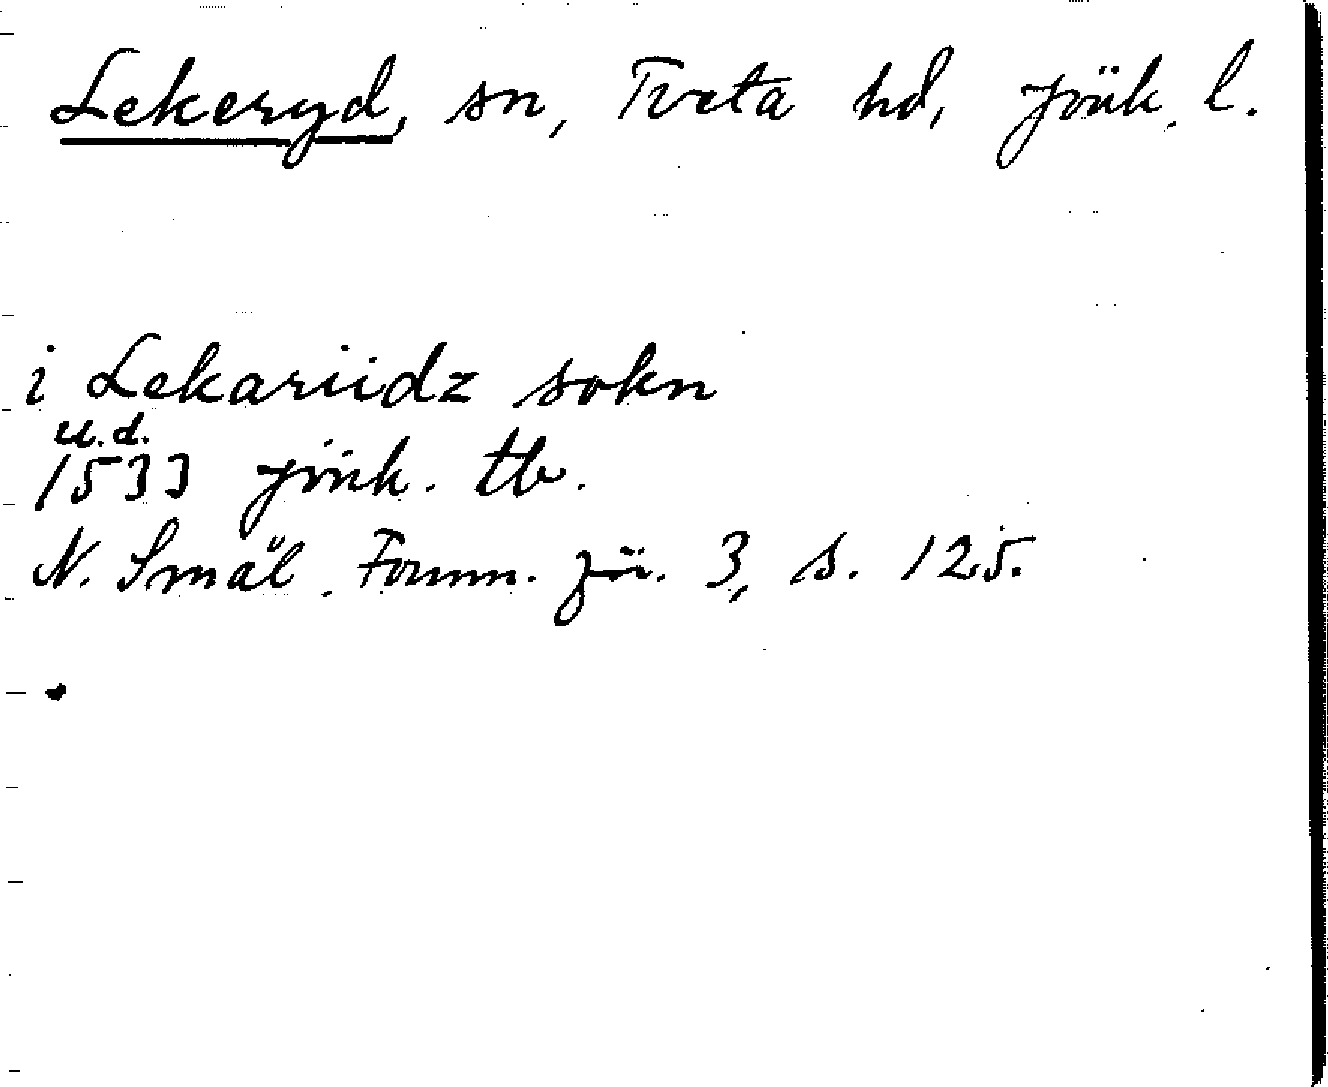 Lekeryd, sn, Tveta hd, Jönk. l.
i Lekariidz sokn
u.d.
1533 Jönk. tb.
N. Smål. Fornm. för. 3, s. 125.